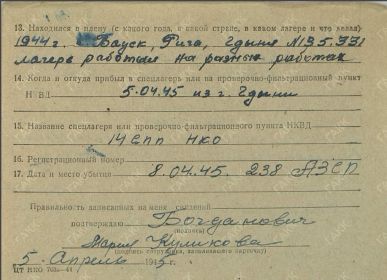 13. Находился в плену (с какого года, в какой стране, в каком лагере и что делал)
1944 г. Бауск, Рига, Гдыня № 135, 331
лагере работал на разных работах
14. Когда и откуда прибыл в спецлагерь или на проверочно-фильтрационный пункт
НКВД 5.04.45 из г. Гдыни
15. Название спецлагеря или проверочно-фильтрационного пункта НКВД
14 СПП НКО
16. Регистрационный номер
17. Дата и место убытия 8.04.45. 238 АЗСП
Правильность записанных на меня сведений
подтверждаю Богданович
(подпись)
Мария Куликова
(подпись сотрудника, заполнившего карточку)
5 Апрель 1945 г.